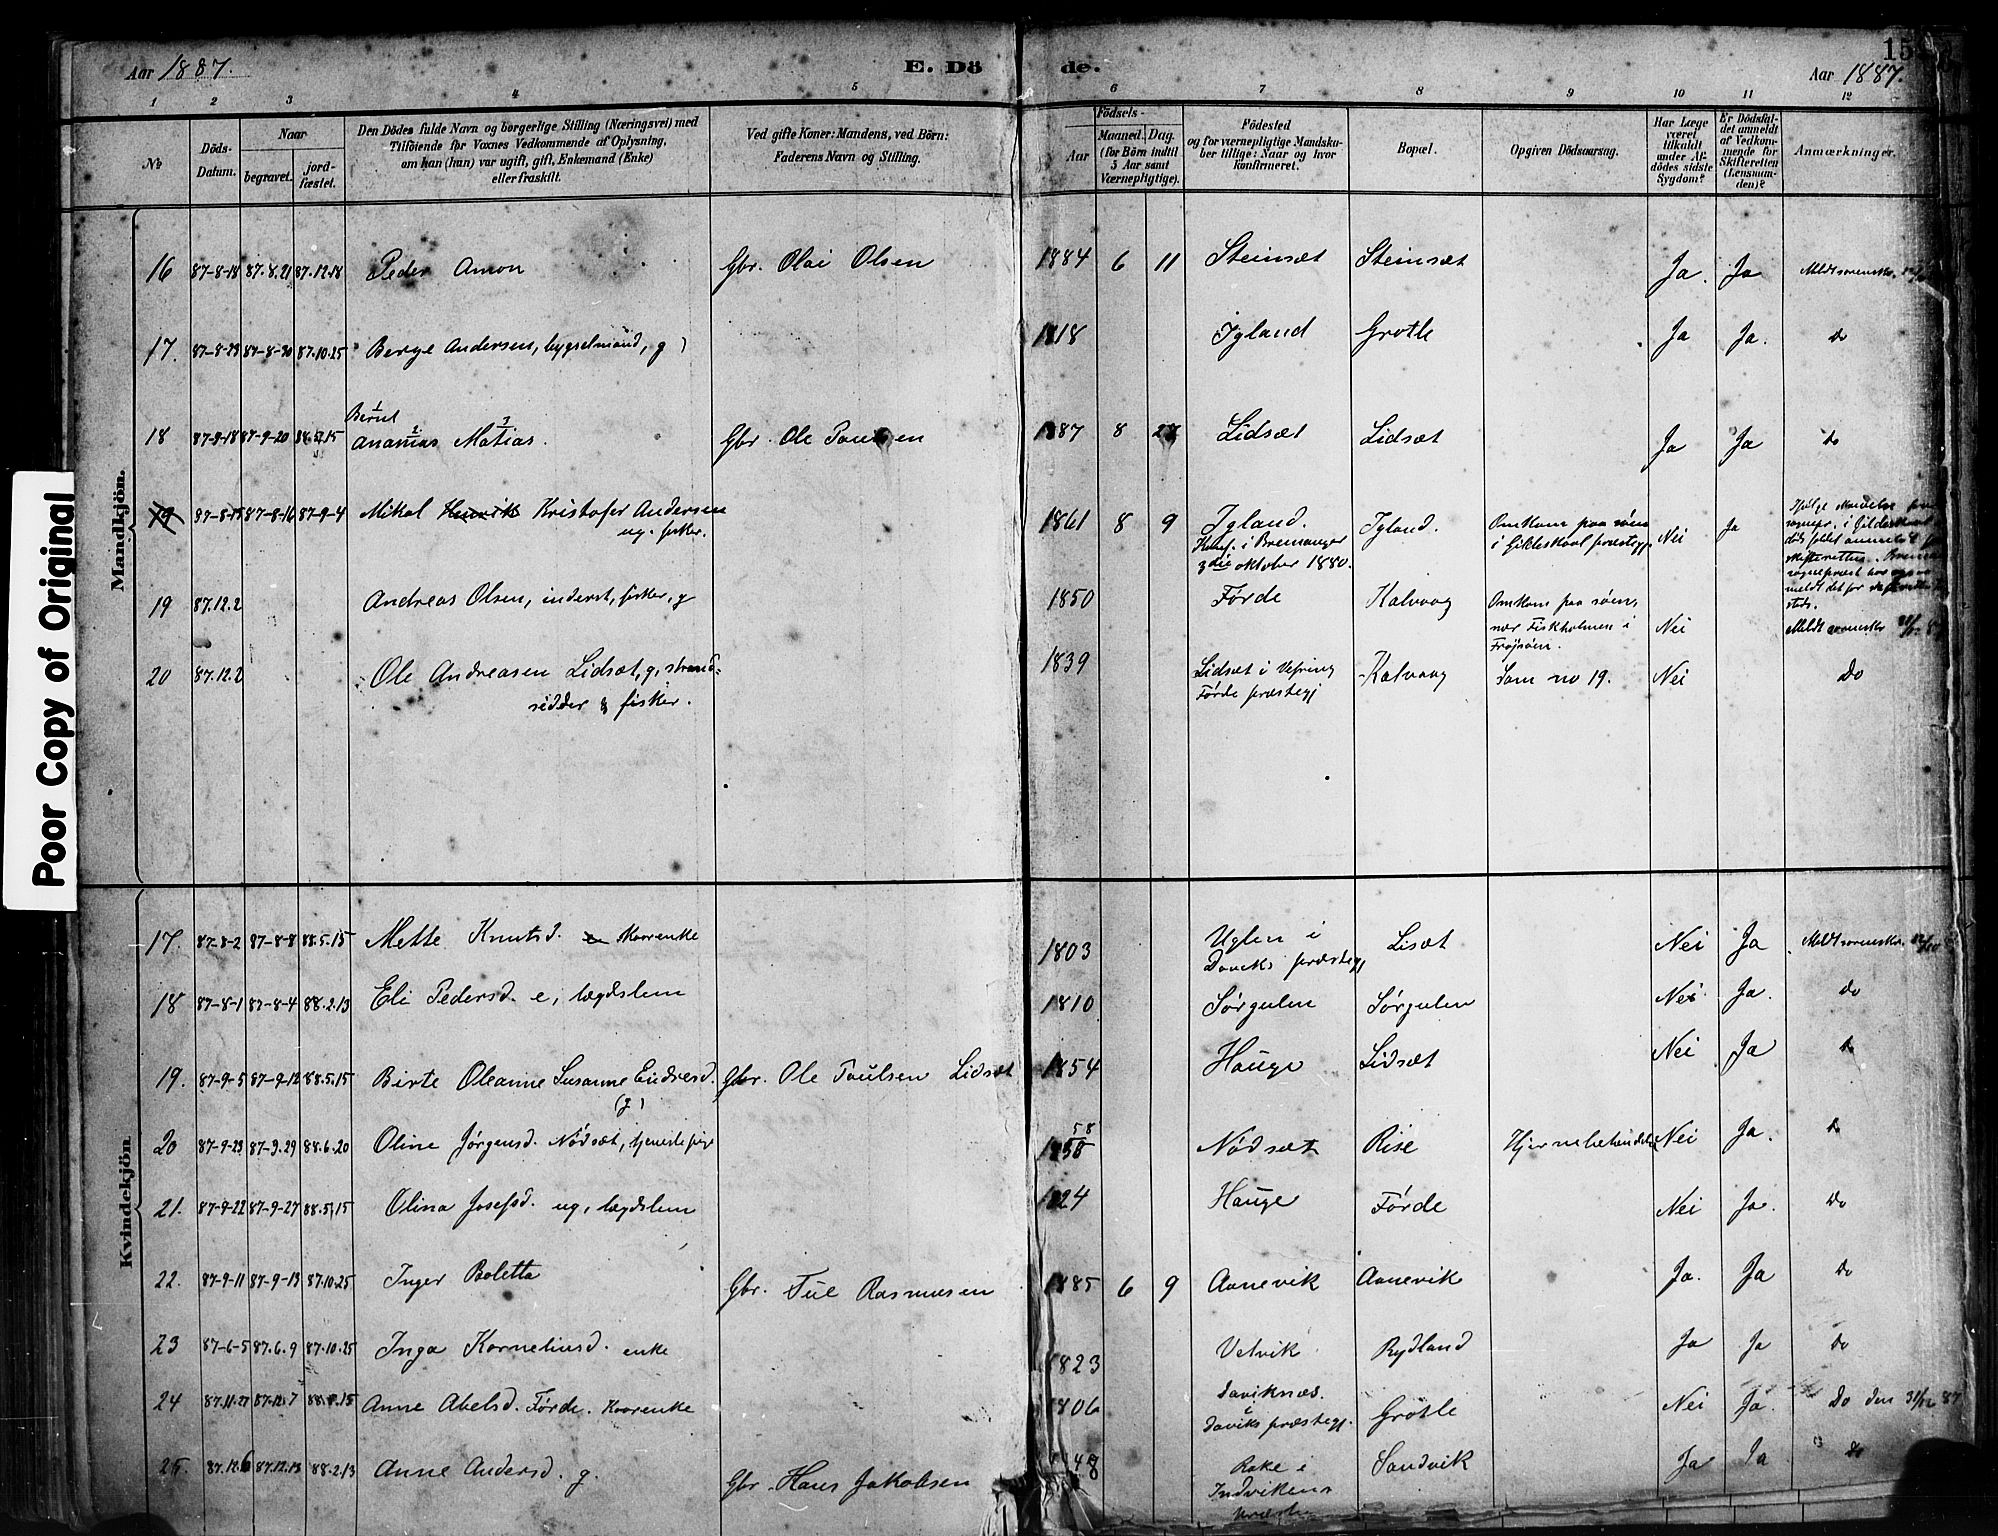 Aar 1887. E. Dö de. Aar 1887.
1 2 3 4 5 6 7 8 9 10 11 12
No
Döds-Datum.
Naar
begravet.
jord-fæstet.
Den Dödes fulde Navn og borgerlige Stilling (Næringsvei) med
Tilföiende för Voxnes Vedkommende af Oplysning,
om han (hun) var ugift, gift, Enkemand (Enke)
eller fraskilt.
Ved gifte Koner: Mandens, ved Börn:
Faderens Navn og Stilling.
Födsels-
Aar
Maaned. Dag.
(for Börn indtil
5 Aar samt
Værnepligtige).
Födested
og for værnepligtige Mandsku-
ber tillige: Naar og hvor
konfirmeret.
Bopæl.
Opgiven Dödsaarsag.
Har Læge
været
tilkaldt
under Af-
dödes sidste
Sygdom?
Er Dödsfal-
det anmeldt
af Vedkom-
mende for
Skifteretten
(Lensman-
den)?
Anmærkninger.
Poor Copy of Original
Mandkjön.
16 87-8-18 87.8.21 87.12.18 Peder Amon Gbr. Olai Olsen 1884 6 11 Steinsæt Steinsæt Ja. Ja
17. 87-8-23 87-8-30 87.10.25 Berge Andersen, bygselmand, g) 1818 Igland Grotle Ja Ja. Do
Bernt
18 87-9-18 87-9-20 Ananias Matias. Gbr. Ole Paulsen 1887 8 Lidsæt Lidsæt Ja Ja Do
19 87-8-15 87-8-16 87-9-4 Mikal Henrik Kristofer Andersen 1861 8 9 Igland. Igland. Omkom paa søen Nei Ja
ug. fisker. Konf. i Bremanger i Gildeskaal præstegj.
3die oktober 1880.
19 87.12.2 Andreas Olsen, inderst, fisker, g 1850 Førde Kalvaag Omkom paa søen,
nær Fiskholmen i Nei
Frøjsøen.
20 87.12.2 Ole Andreasen Lidsæt, g, strand- 1839 Lidsæt i Vefring Kalvaag Som no 19. Nei Do
sidder & fisker. Førde præstegj
Kvindekjön.
17. 87-8-2 87-8-8 88.5.15 Mette Knutsd. e kaarenke 1803 Uglen i Lisæt Nei Ja
Daviks præstegj
18 87-8-1 87-8-4 88.2.13 Eli Pedersd. e, lægdslem 1810 Sørgulen Sørgulen Nei Ja. Do
19. 87-9-5 87-9-12 88.5.15 Birte Oleanne Susanne Endresd. Gbr. Ole Paulsen Lidsæt 1854 Hauge Lidsæt Nei Ja Do
(g)
20 87-9-23 87-9.29 88.6.20 Oline Jørgensd. Nødsæt, tjenestepige 1858 58 Nødsæt Rise Nei Ja. Do
21. 87-9-22 87-9-27 88.5.15 Olina Josefsd. ug, lægdslem 1824 Hauge Førde Nei Ja. Do
22. 87-9-11 87-9-13 87.10.25 Inger Boletta Gbr. Tue Rasmusen 1885 6 9 Aanevik Aanevik Ja. Ja Do
23 87-6-5 87.6.9 87.10.25 Inga Korneliusd. enke 1823 Vetvik Rydland Ja Ja Do
24 87.11.27 87.12.7 Anne Abelsd. Førde. kaarenke 1806 Daviknæs. Grotle Nei Ja. Do den 31/12 87
i
Daviks præstegj.
25. 87.12.6 87.12.13 88.2.13 Anne Andersd. g. Gbr. Hans Jakobsen 48 Rake i Sandvik Ja Ja Do
Indvikens